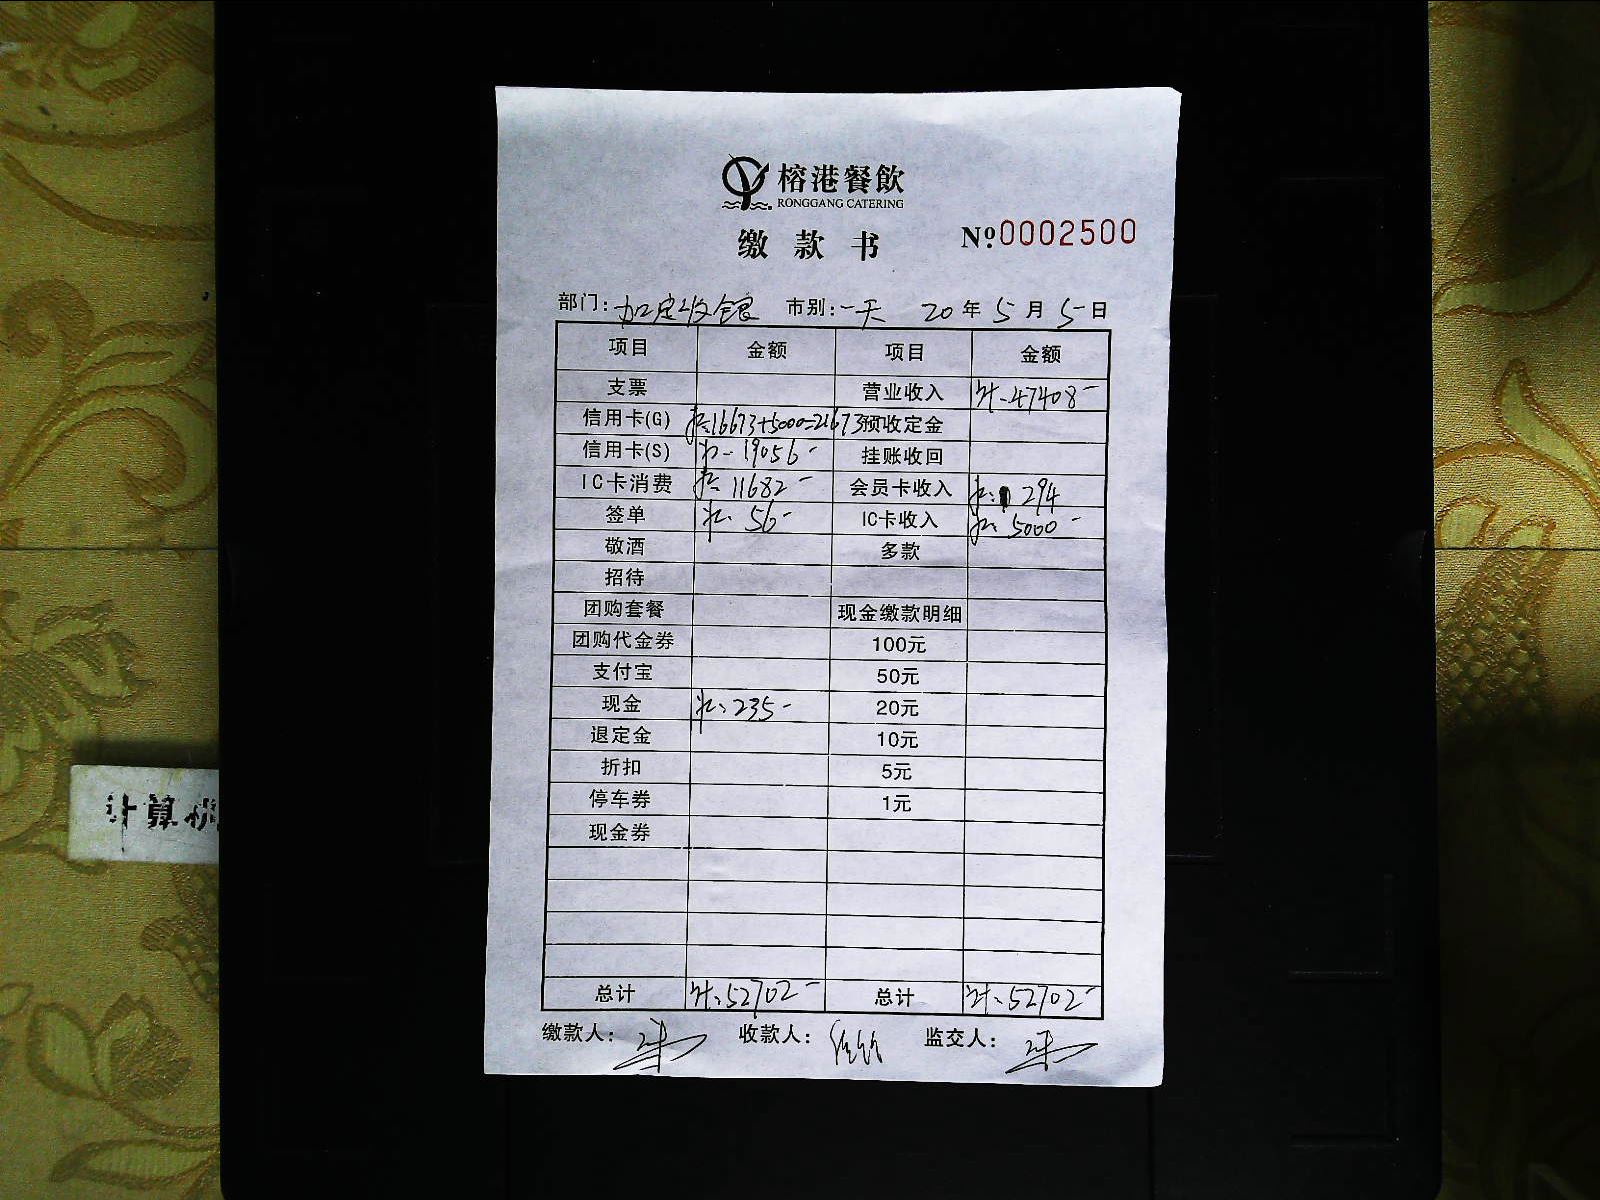 榕港餐飲
RONGGANG CATERING
缴款书 No.0002500
部门: 加定收银 市别: 一天 20年5月5日
项目 金额 项目 金额
支票 营业收入 计:47408-
信用卡(G) 计:16673+5000=21673 预收定金
信用卡(S) 计:19056- 挂账收回
IC卡消费 计:11682- 会员卡收入 计:294
签单 计:56- IC卡收入 计:5000-
敬酒 多款
招待
团购套餐 现金缴款明细
团购代金券 100元
支付宝 50元
现金 计:235- 20元
退定金 10元
折扣 5元
停车券 1元
现金券
总计 计:52702- 总计 计:52702-
缴款人: 收款人: 监交人:
计算机